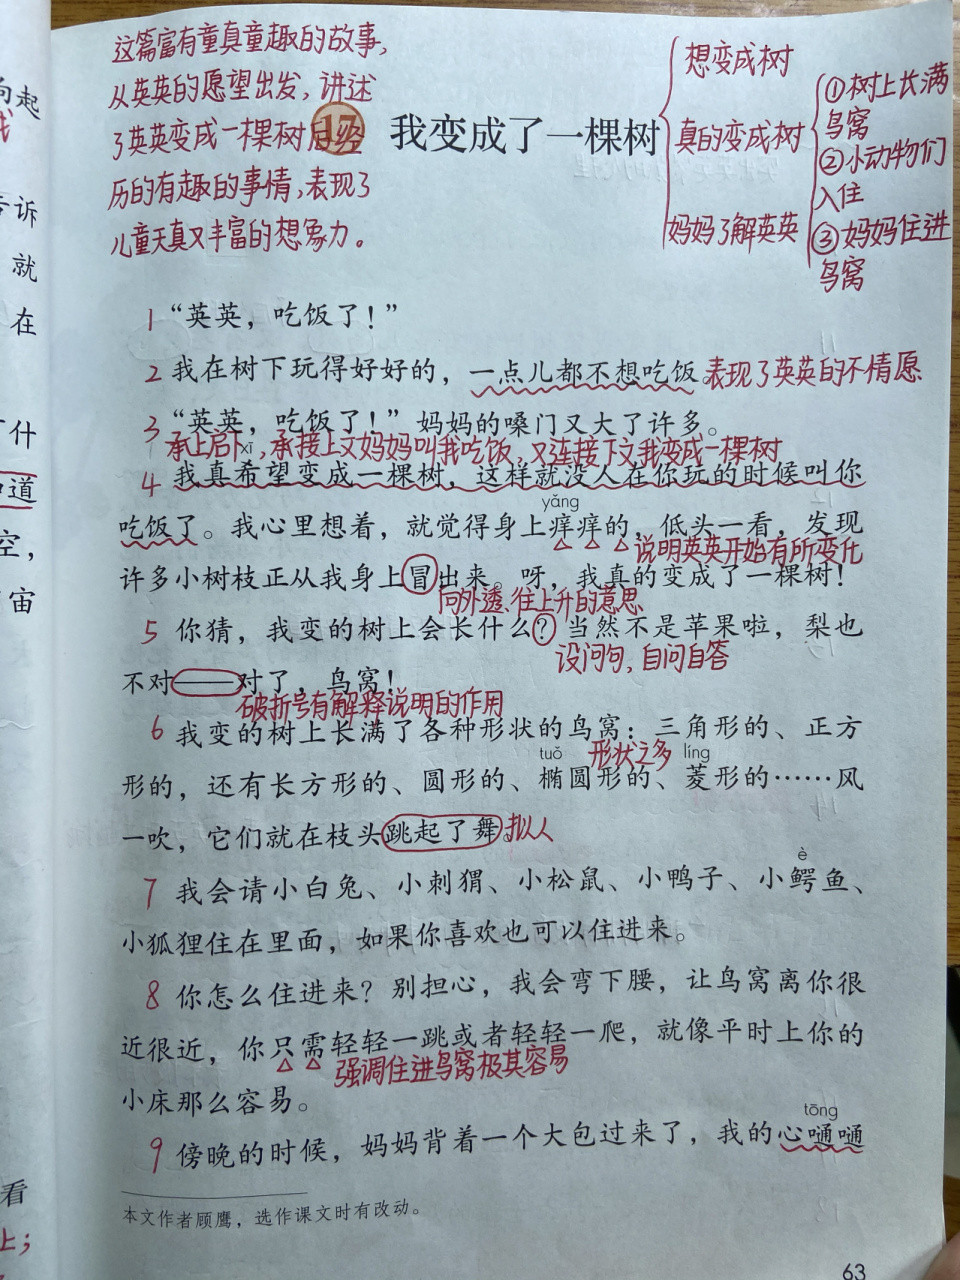 这篇富有童真童趣的故事,
从英英的愿望出发,讲述
了英英变成一棵树后经
历的有趣的事情,表现了
儿童天真又丰富的想象力。
17 我变成了一棵树
想变成树
真的变成树
妈妈了解英英
①树上长满
鸟窝
②小动物们
入住
③妈妈住进
鸟窝
1 “英英，吃饭了！”
2 我在树下玩得好好的，一点儿都不想吃饭。表现了英英的不情愿
3 “英英，吃饭了！”妈妈的嗓门又大了许多。
承上启下,承接上文妈妈叫我吃饭,又连接下文我变成一棵树
xī
4 我真希望变成一棵树，这样就没人在你玩的时候叫你
yǎng
吃饭了。我心里想着，就觉得身上痒痒的，低头一看，发现
说明英英开始有所变化
许多小树枝正从我身上冒出来。呀，我真的变成了一棵树！
向外透、往上升的意思
5 你猜，我变的树上会长什么？当然不是苹果啦，梨也
设问句,自问自答
不对——对了，鸟窝！
破折号有解释说明的作用
6 我变的树上长满了各种形状的鸟窝：三角形的、正方
tuǒ 形状之多 líng
形的，还有长方形的、圆形的、椭圆形的、菱形的……风
一吹，它们就在枝头跳起了舞。拟人
è
7 我会请小白兔、小刺猬、小松鼠、小鸭子、小鳄鱼、
小狐狸住在里面，如果你喜欢也可以住进来。
8 你怎么住进来？别担心，我会弯下腰，让鸟窝离你很
近很近，你只需轻轻一跳或者轻轻一爬，就像平时上你的
强调住进鸟窝极其容易
小床那么容易。
tōng
9 傍晚的时候，妈妈背着一个大包过来了，我的心嗵嗵
本文作者顾鹰，选作课文时有改动。
63
向起
我
告诉
就
在
什
知道
空，
宙
看
上；